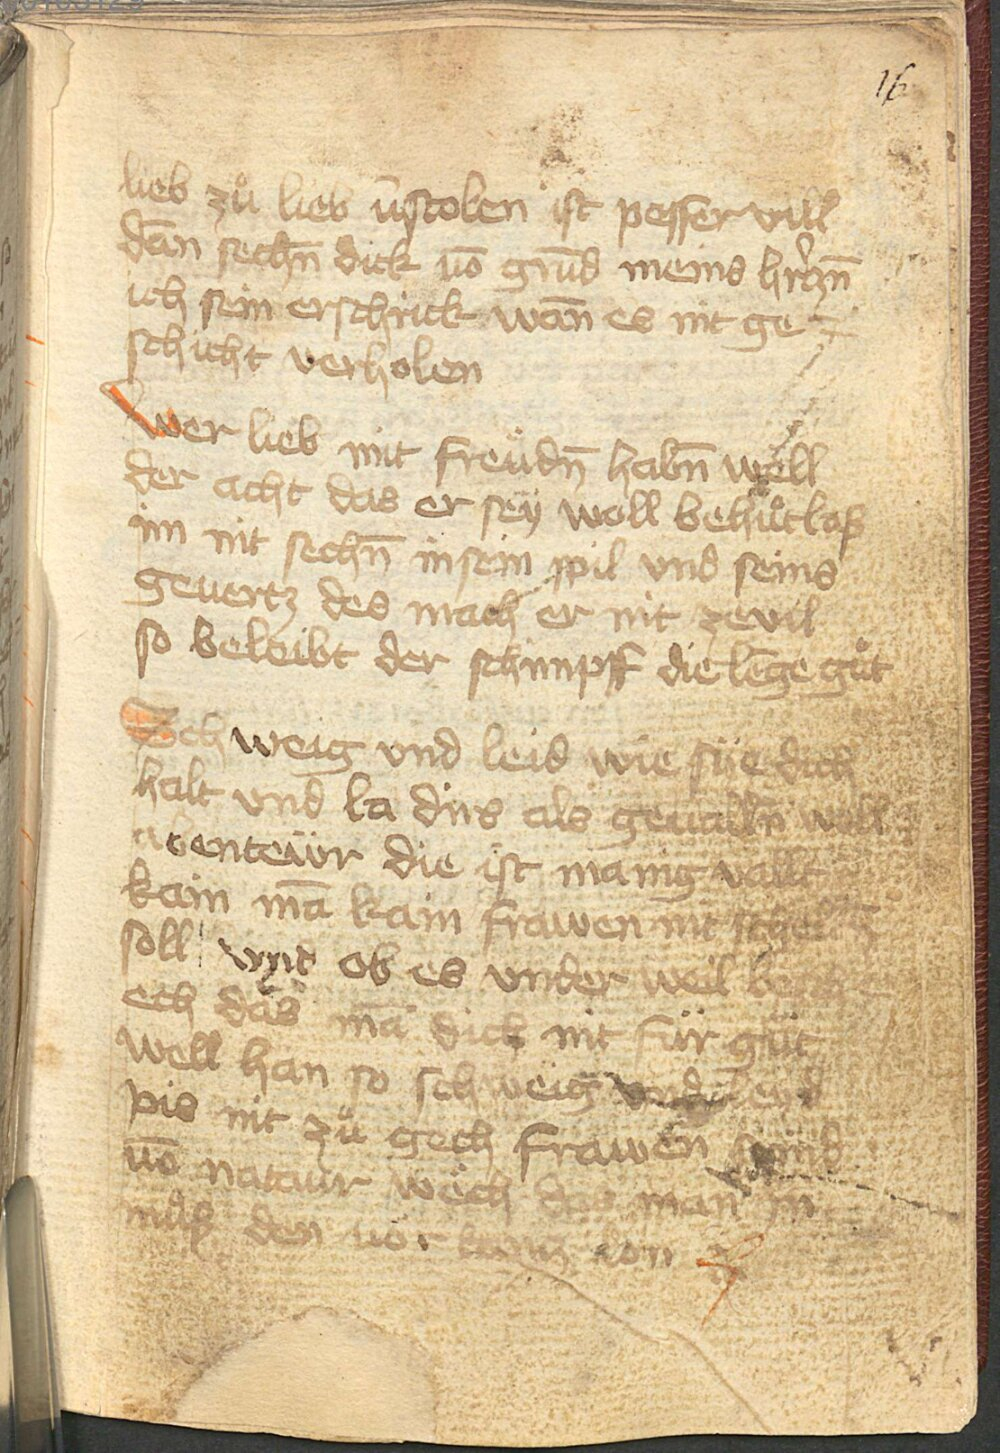 16
lieb zuͦ lieb v̄stolen ist pesser vill
dan̄ sechn̄ dick vō grūd meins hr̉czn̄
ich sein erschrick wan̄ es nit ge
schicht verholen
Wer lieb mit freu̇dn̄ habn̄ well
der acht das er sey woll behuͤt laß
im nit sechn̄ in sein spil vnd seins
geuertz des mach er nit zevil
so beleibt der schimpff die lēge guͦt
Schweig vnd leid wie sue dich
halt vnd la dirs als geualln̄ woll
abenteür die ist manig vallt
kain mā kain frawen nit
soll vnd ob es vnder weil
ech das mā dick nit für guͦt
well han so schweig vnd
pis nit zuͦ gech frawen sind
vō natuur wech das man in
muͦß den vor